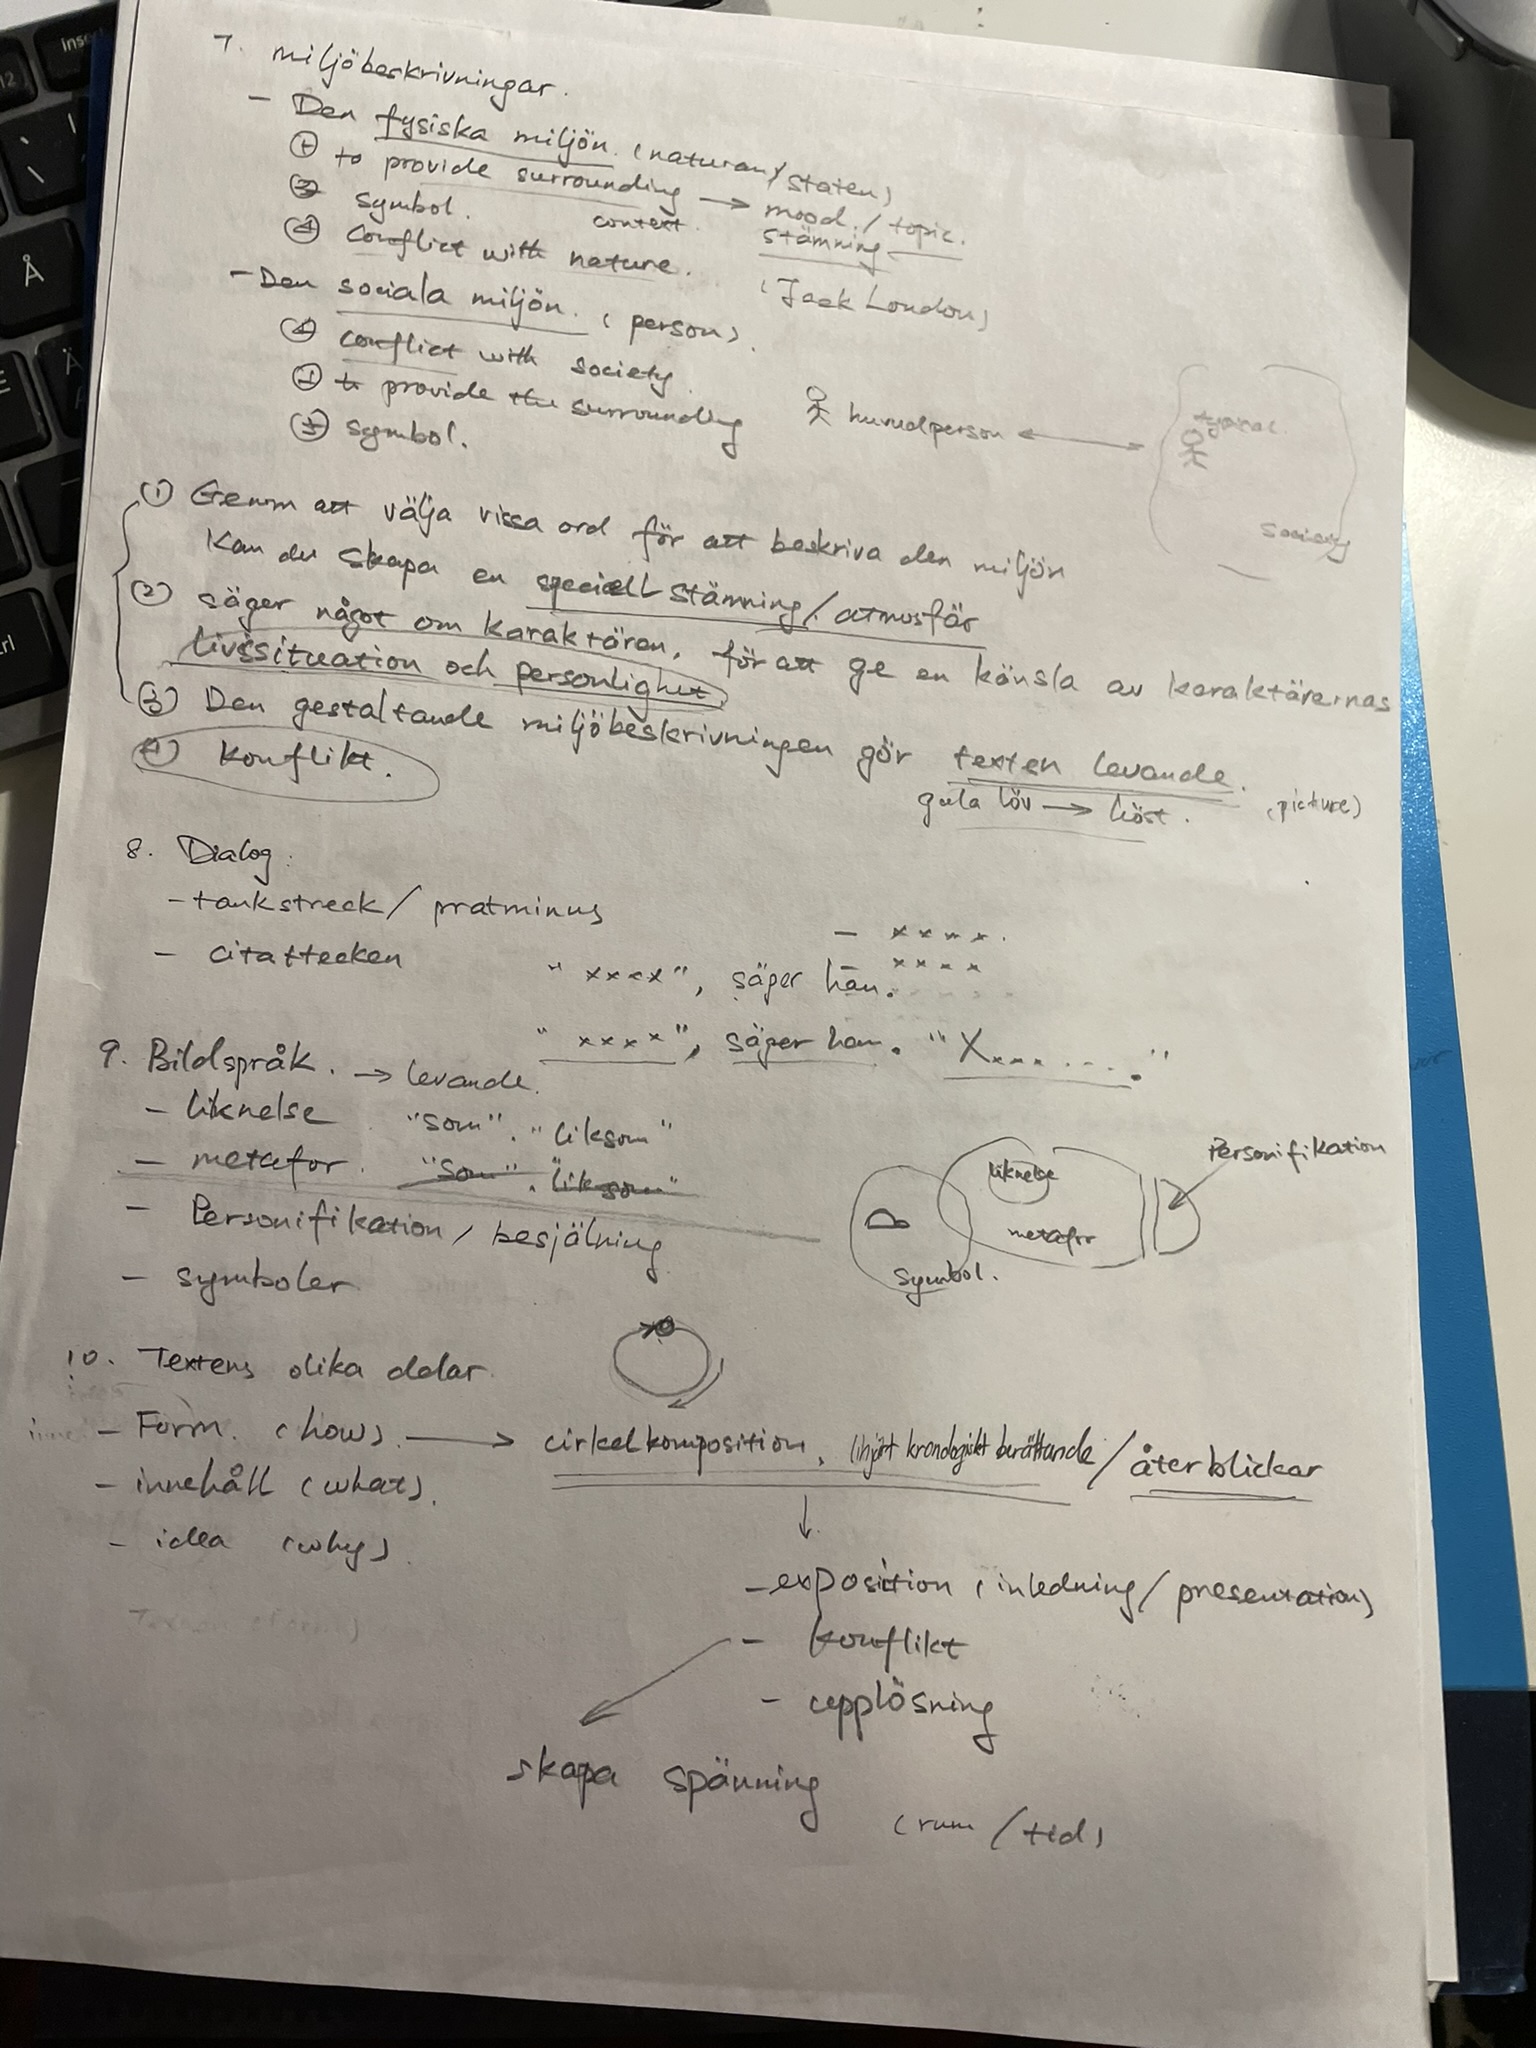 7. miljöbeskrivningar.
- Den fysiska miljön. (naturan/staten)
① to provide surrounding → mood / topic.
context. stämning
③ symbol.
④ conflict with nature. (Jack London)
- Den sociala miljön. (person).
④ conflict with society
① to provide the surrounding
③ symbol.
huvudperson ↔ typical.
society
① Genom att välja vissa ord för att beskriva den miljön
kan du skapa en speciell stämning/atmosfär
② säger något om karaktären, för att ge en känsla av karaktärernas
livssituation och personlighet
③ Den gestaltande miljöbeskrivningen gör texten levande.
④ konflikt.
gula löv → höst. (picture)
8. Dialog:
- tankstreck/ pratminus
- xxxx.
- xxxx
- citattecken
"xxxx", säger han.
"xxxx", säger han. "Xxxx ...."
9. Bildspråk. → levande.
- liknelse "som". "liksom"
- metafor. "som". "liksom"
- Personifikation/ besjälning
- symboler
Personifikation
liknelse
metafor
symbol.
10. Textens olika delar.
- Form. (how). → cirkelkomposition, linjärt kronologiskt berättande/återblickar
- innehåll (what).
- idea (why)
↓
- exposition (inledning/presentation)
- konflikt
- upplösning
skapa spänning
(rum/tid)